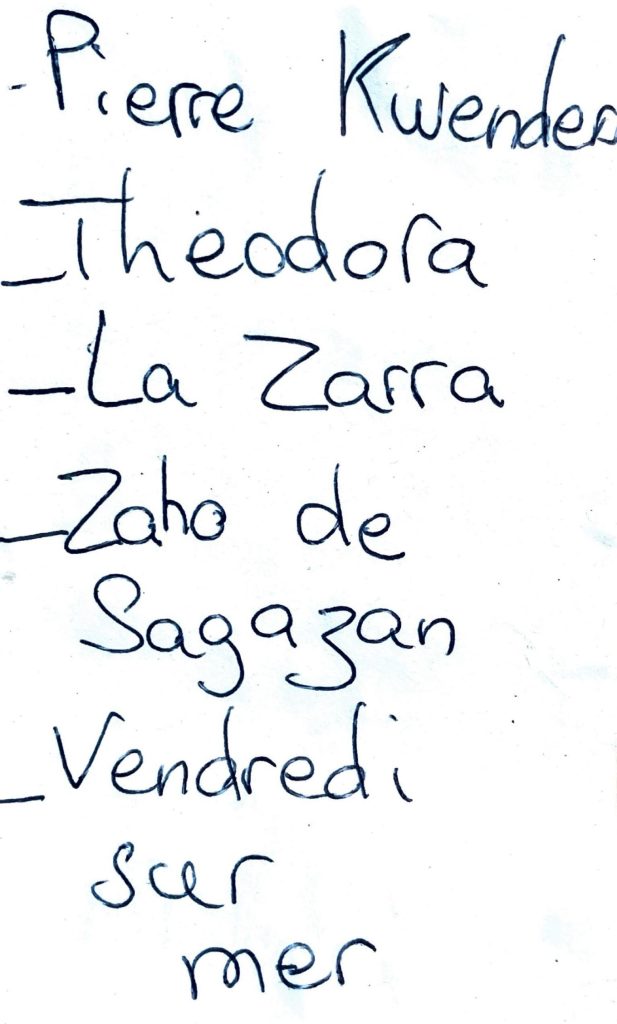 - Pierre Kwenders
- Theodora
- La Zarra
- Zaho de
Sagazan
- Vendredi
sur
mer